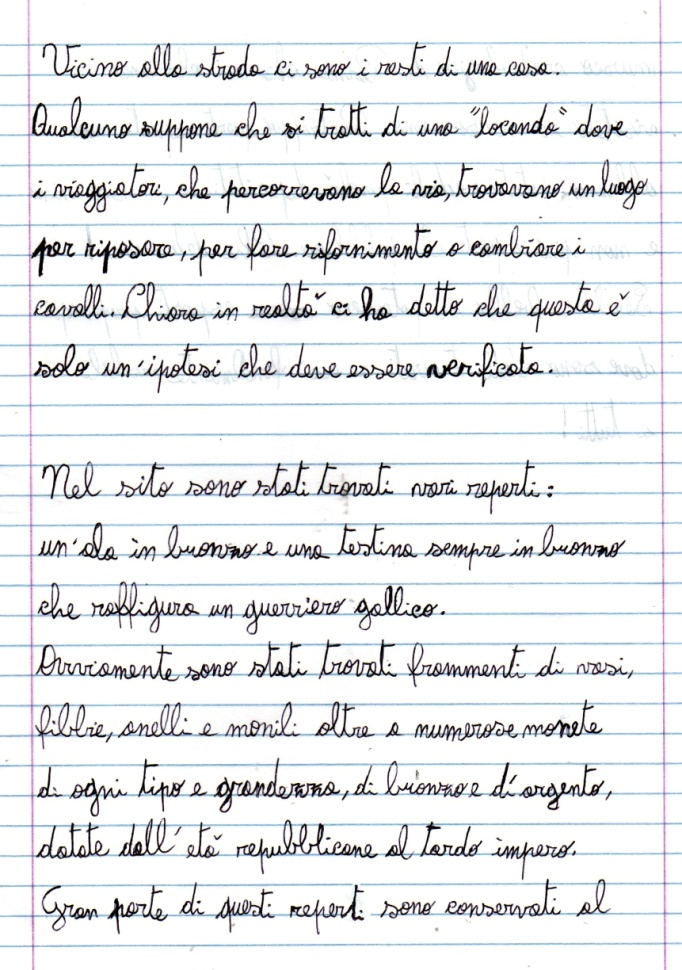 Vicino alla strada ci sono i resti di una casa.
Qualcuno suppone che si tratti di una "locanda" dove
i viaggiatori, che percorrevano la via, trovavano un luogo
per riposare, per fare rifornimento o cambiare i
cavalli. Chiara in realtà ci ha detto che questa è
solo un'ipotesi che deve essere verificata.
Nel sito sono stati trovati vari reperti:
un'ala in bronzo e una testina sempre in bronzo
che raffigura un guerriero gallico.
Ovviamente sono stati trovati frammenti di vasi,
fibbie, anelli e monili oltre a numerose monete
di ogni tipo e grandezza, di bronzo e d'argento,
datate dall'età repubblicana al tardo impero.
Gran parte di questi reperti sono conservati al